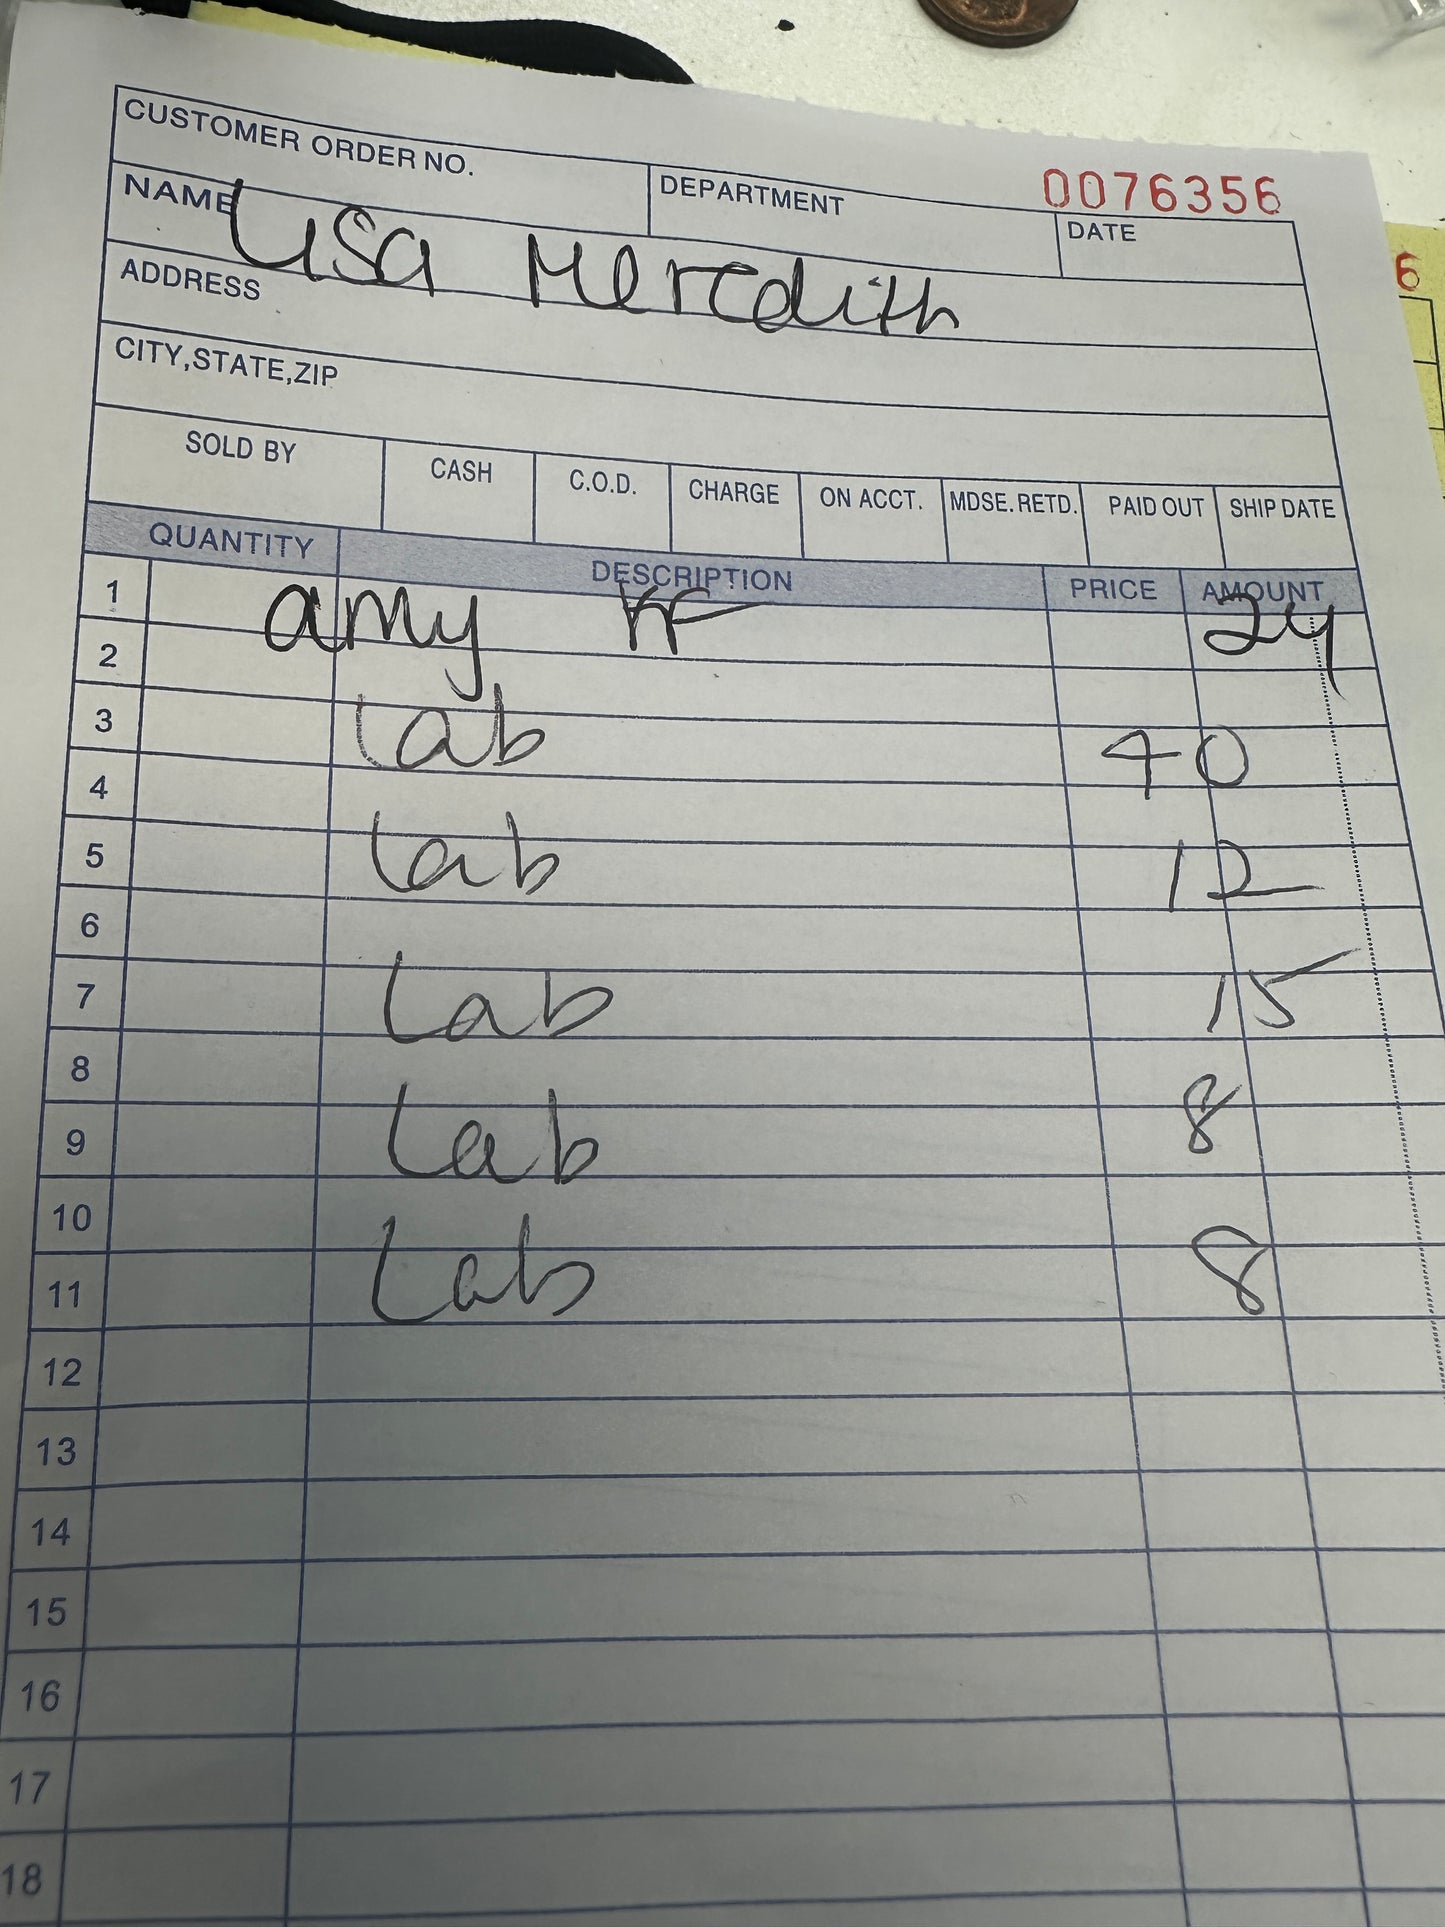 CUSTOMER ORDER NO. DEPARTMENT 0076356
DATE
NAME Lisa Meredith
ADDRESS
CITY,STATE,ZIP
SOLD BY CASH C.O.D. CHARGE ON ACCT. MDSE. RETD. PAID OUT SHIP DATE
QUANTITY DESCRIPTION PRICE AMOUNT
1 amy 24
2
3 Lab 40
4
5 Lab 12
6
7 Lab 15
8
9 Lab 8
10
11 Lab 8
12
13
14
15
16
17
18
6